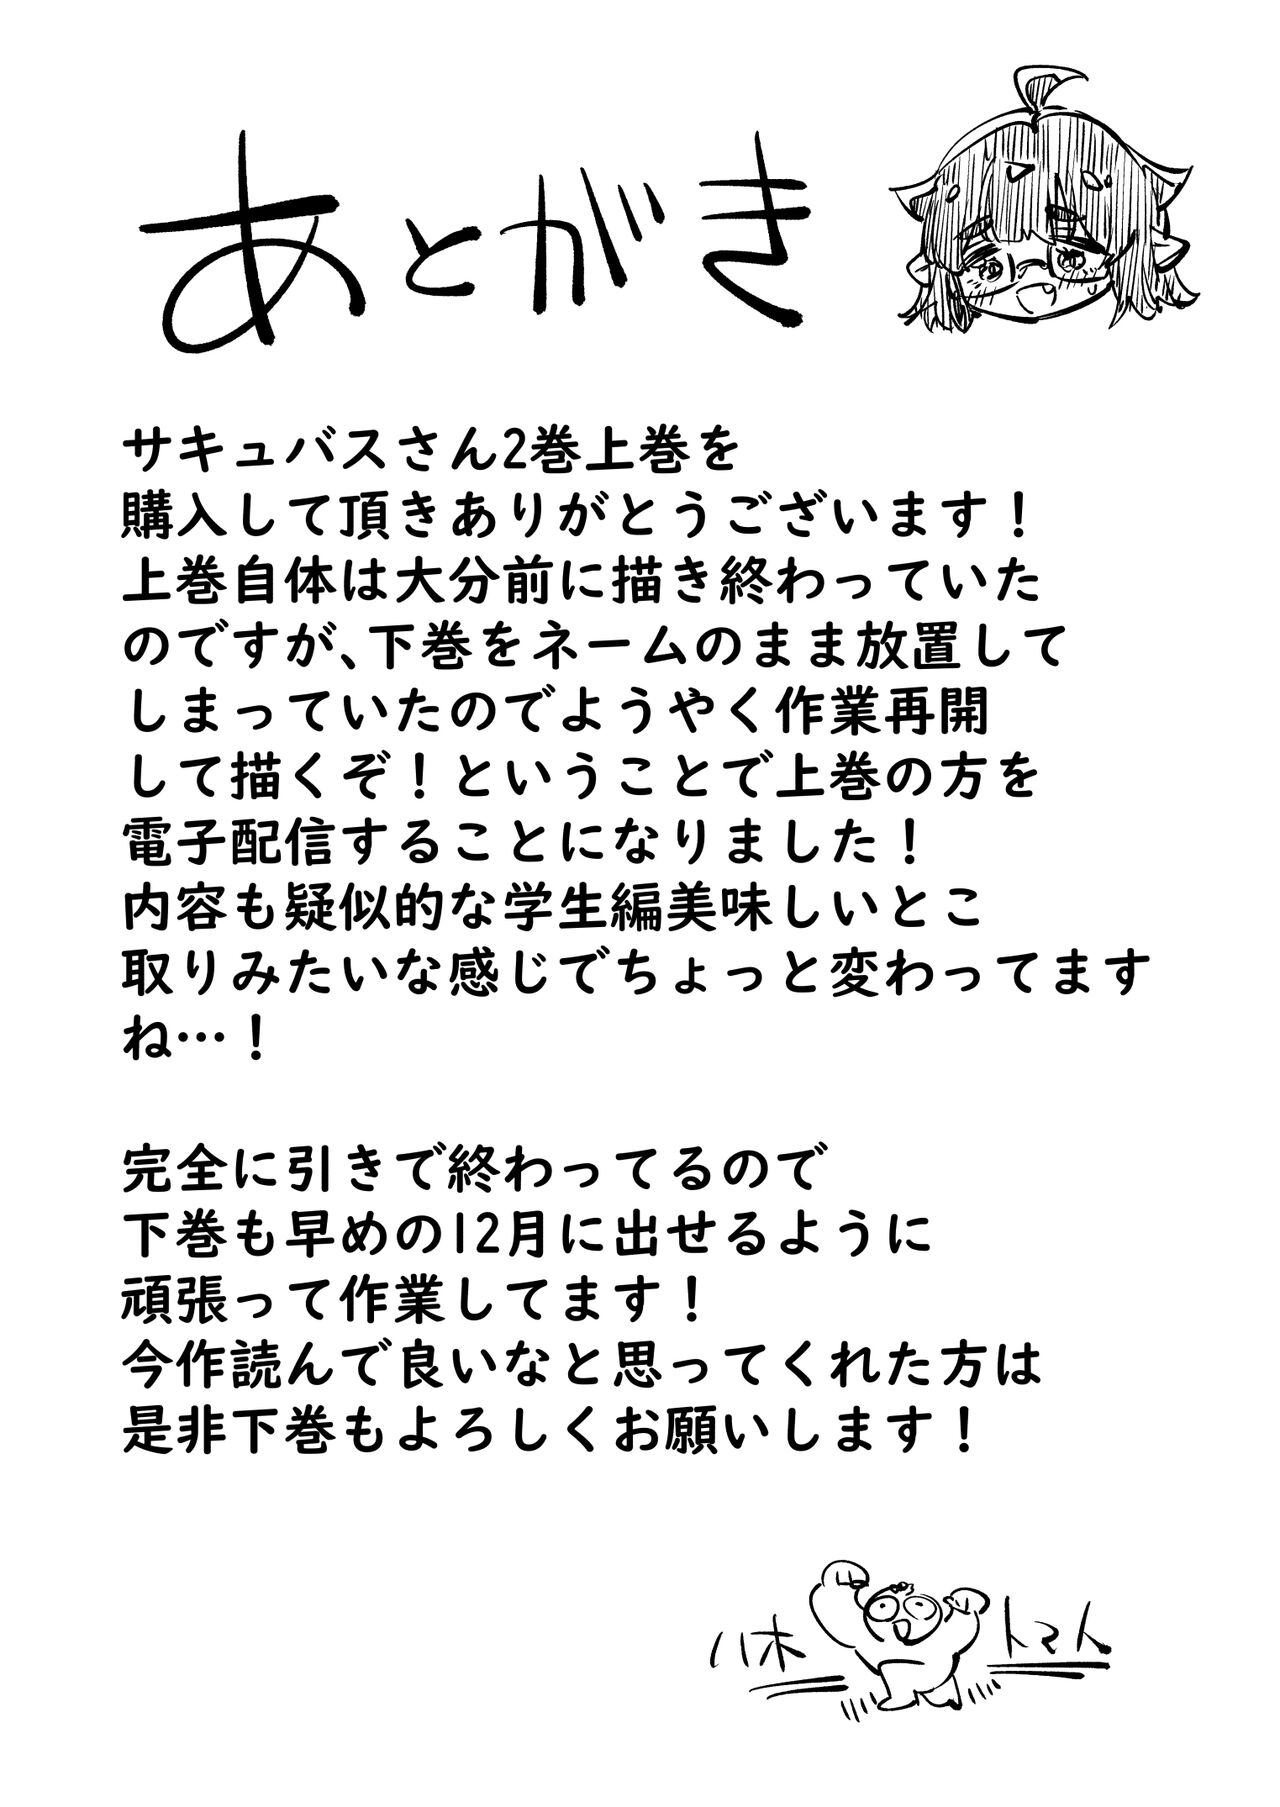 あとがき
サキュバスさん2巻上巻を
購入して頂きありがとうございます！
上巻自体は大分前に描き終わっていた
のですが、下巻をネームのまま放置して
しまっていたのでようやく作業再開
して描くぞ！ということで上巻の方を
電子配信することになりました！
内容も疑似的な学生編美味しいとこ
取りみたいな感じでちょっと変わってます
ね…！
完全に引きで終わってるので
下巻も早めの12月に出せるように
頑張って作業してます！
今作読んで良いなと思ってくれた方は
是非下巻もよろしくお願いします！
ハホ トマト